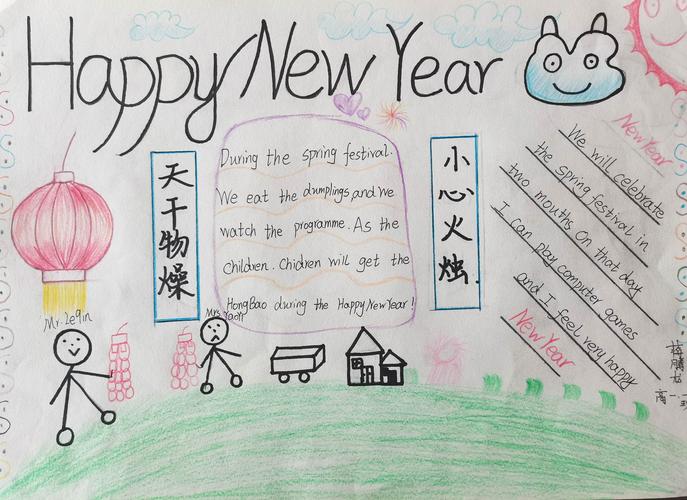 Happy New Year
天干物燥
During the spring festival.
We eat the dumplings, and we
watch the programme. As the
children. Chidren will get the
HongBao during the Happy New Year!
小心火烛.
New Year
We will celebrate
the spring festival in
two mouths On that day
I can play computer games
and I feel very happy
New Year
Mr. Le9in
Mrs.